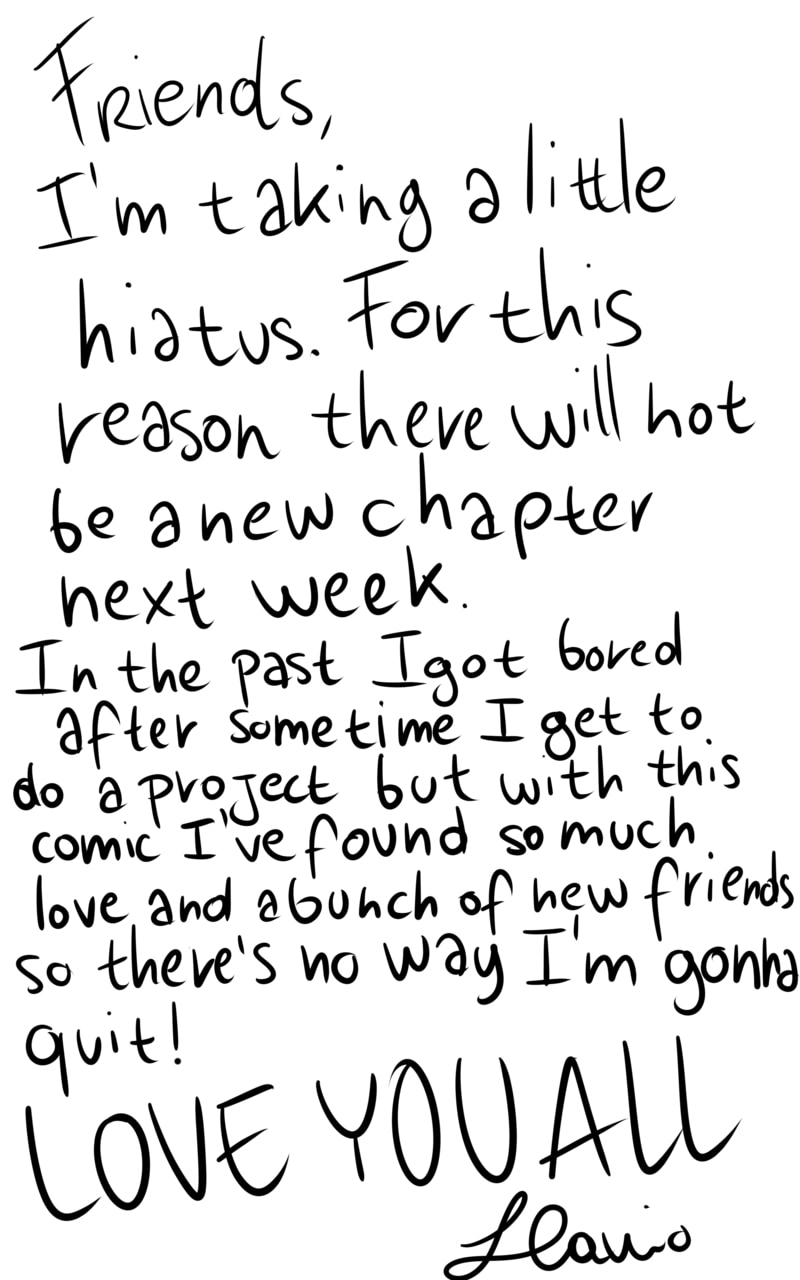 Friends,
I'm taking a little
hiatus. For this
reason there will not
be a new chapter
next week.
In the past I got bored
after sometime I get to
do a project but with this
comic I've found so much
love and a bunch of new friends
so there's no way I'm gonna
quit!
LOVE YOU ALL
Flavio